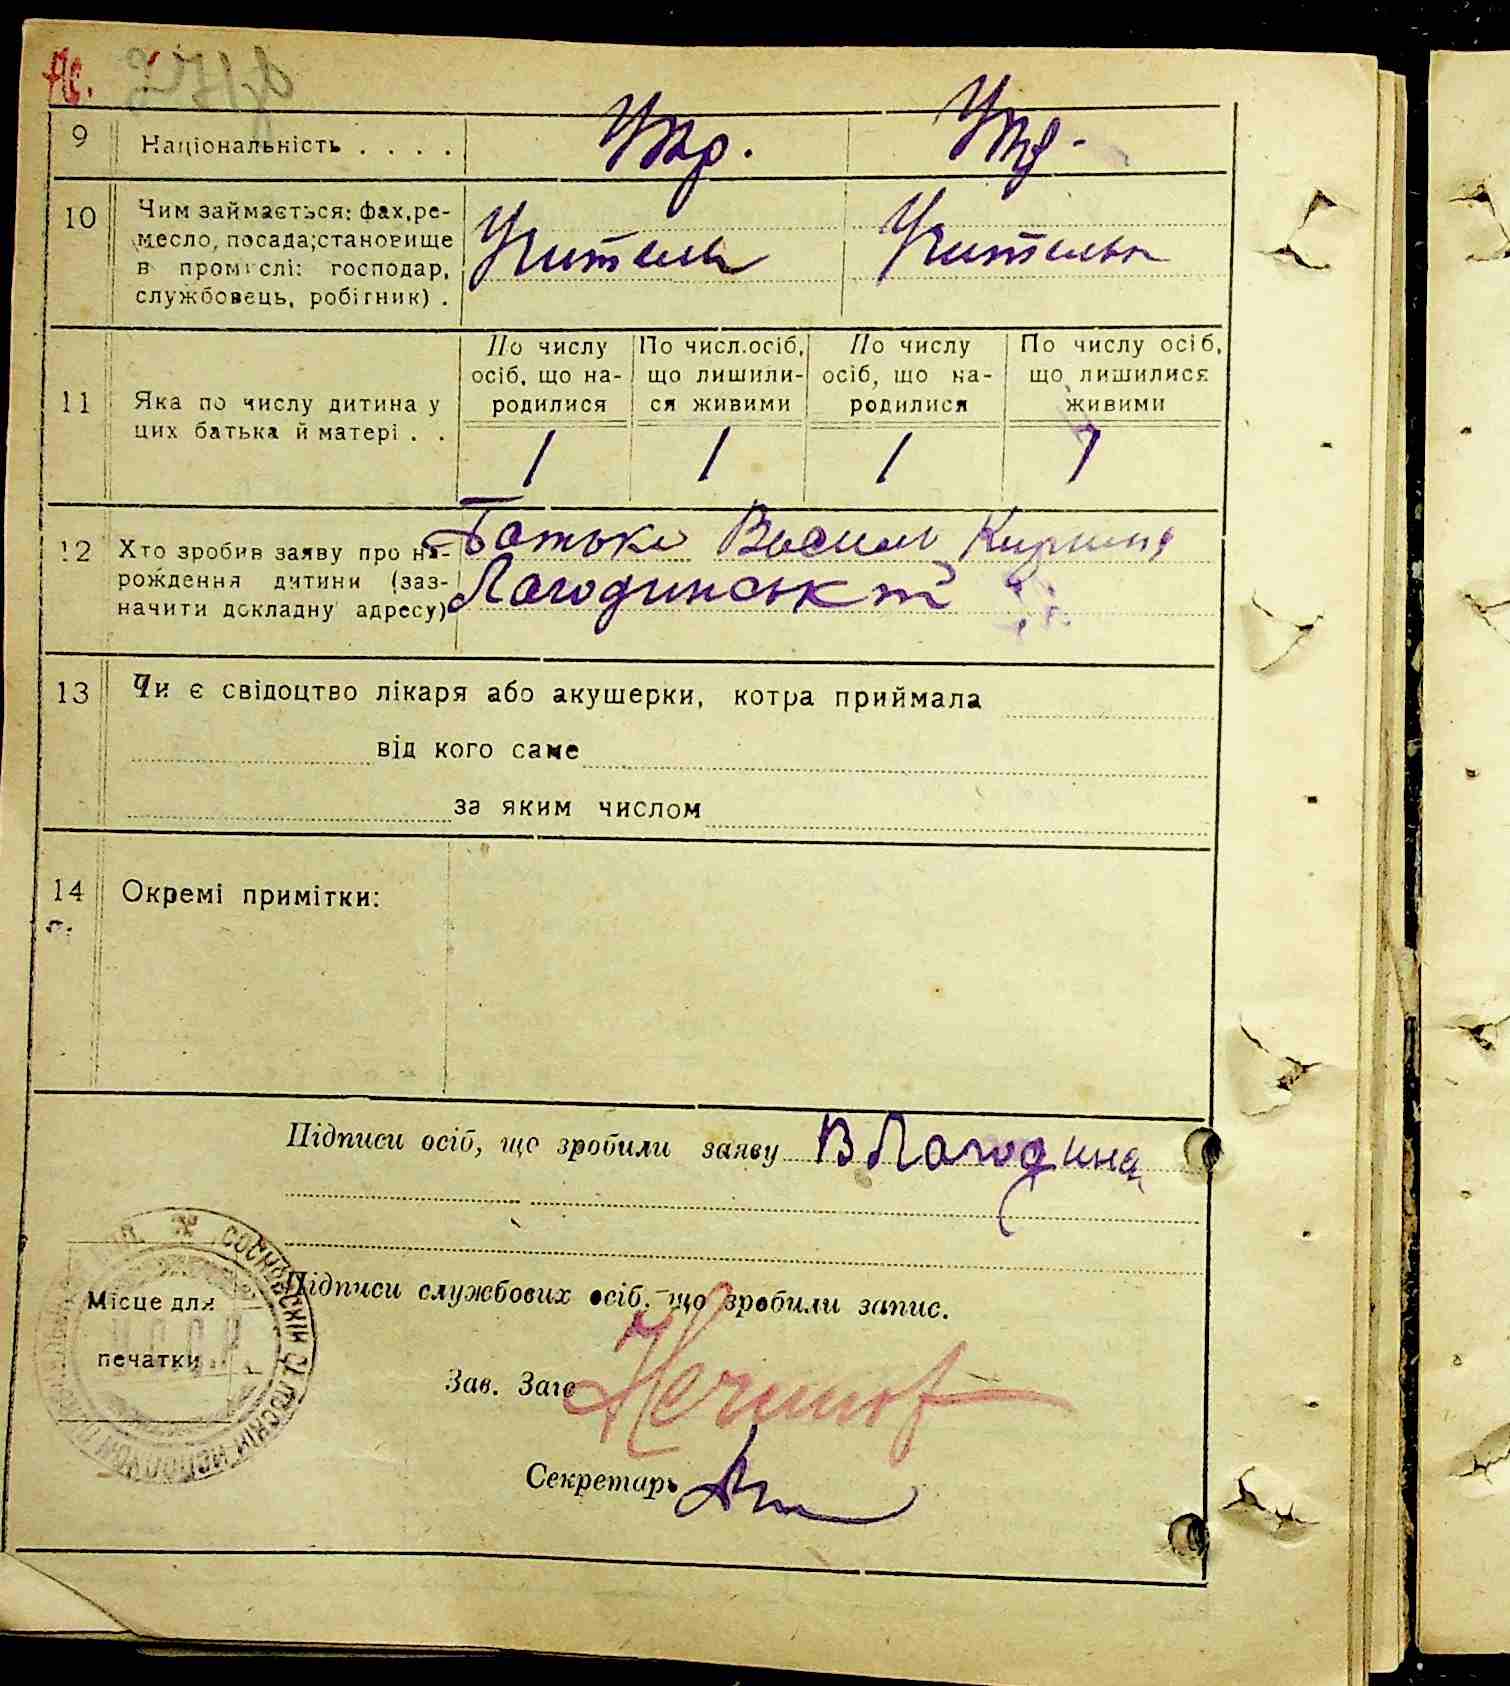 9 Національність . . . . Укр. Укр.
10 Чим займається: фах, ре-
месло, посада; становище
в промислі: господар,
службовець, робітник) .
Учитель Учителька
По числу осіб, що на-родилися
По числ. осіб, що лишили-ся живими
По числу осіб, що на-родилися
По числу осіб, що лишилися живими
11 Яка по числу дитина у
цих батька й матері . .
1 1 1 1
12 Хто зробив заяву про на-
рождення дитини (заз-
начити докладну адресу)
Батько Василь
13 Чи є свідоцтво лікаря або акушерки, котра приймала
від кого саме
за яким числом
14 Окремі примітки:
Підписи осіб, що зробили заяву В Лагодина
Підписи службових осіб, що зробили запис.
Місце для
печатки
Зав. Загс
Секретарь